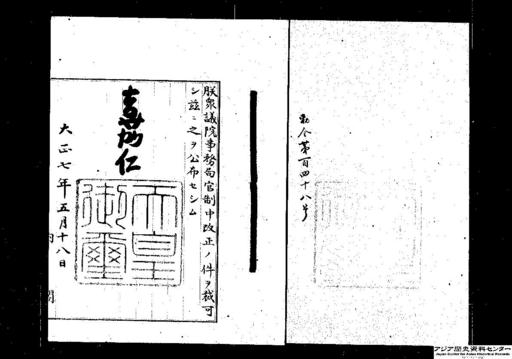 勅令第百四十八号
朕衆議院事務局官制中改正ノ件ヲ裁可
シ茲ニ之ヲ公布セシム
嘉仁
天皇御璽
大正七年五月十八日
内閣
アジア歴史資料センター
Japan Center for Asian Historical Records